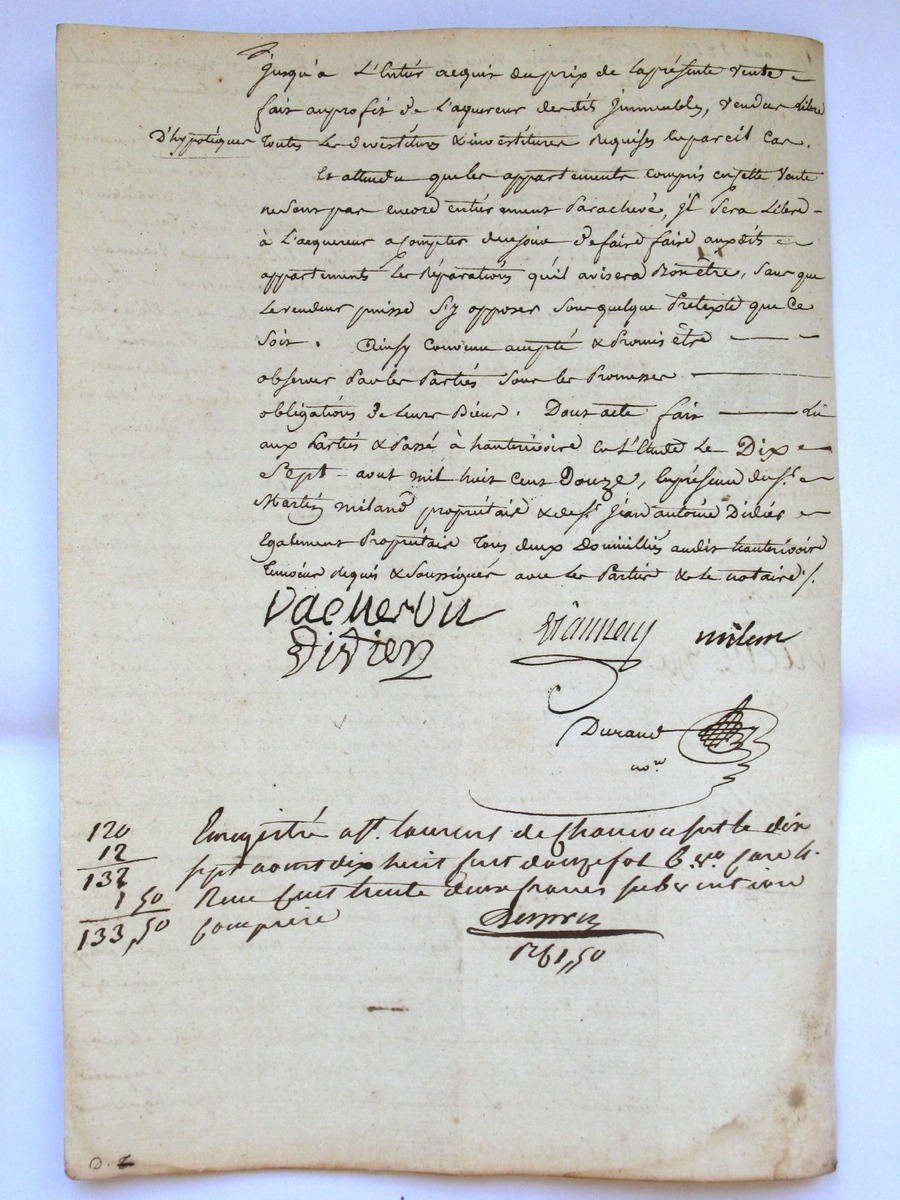 jusqu'a L'Entier acquit du prix de la présente vente
fait au profit de l'aquereur desdits Jmmeubles, vendus Libre
D'hypotèques toutes les devestitures & investitures requises en pareil Cas.
Et attendu que les appartements Compris en cette Vente
ne sont pas encore entierement Parachevé, jl Sera Libre
à L'acquereur a Compter de ce jour de faire faire auxdits
appartements Les Réparations qu'il avisera Bon être, sans que
Le vendeur puisse S'y opposer Sous quelque Pretexte que Ce
Soit. Ainsy Convenu accepté & Promis être
observer Par les Parties Sous les Promesses
obligations de Leurs Biens. Dont acte fait Lu
aux Parties & Passé à hauterivoire en l'Etude Le Dix
Sept aout mil huit Cent Douze, En présence du Sr
Martin milan propriétaire & de Sr Jean antoine Didier
Egalement Propriétaire Tous deux Domiciliés audit hauterivoire
Temoins requis & Soussignés avec les Parties & le notaire ./.
Vacheron
Viannay milan
Didier
Durand
nore
120
12
132
1 50
133,50
Enregistré a St. laurent de Chamousset le dix
sept aout dix huit cent douze fol
Reçu cent trente deux francs subvention
Comprise
161,50
D. 2